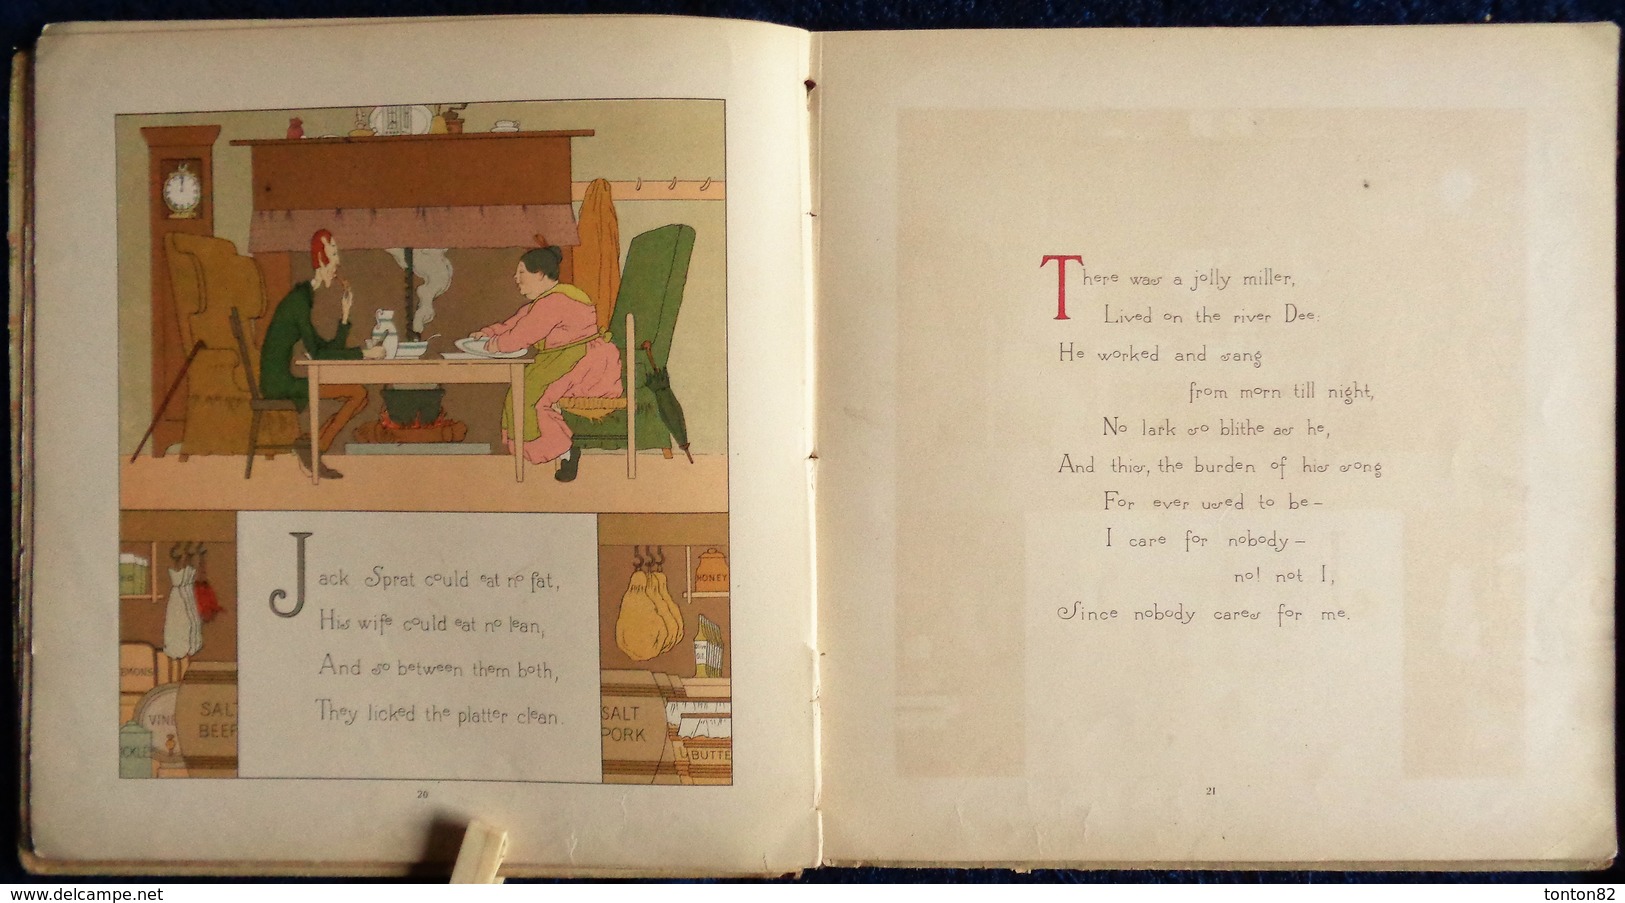 EMONS
VIN
CKLE
SALT
BEEF
Jack Sprat could eat no fat,
His wife could eat no lean,
And so between them both,
They licked the platter clean.
HONEY
SALT
PORK
BUTTE
20
There was a jolly miller,
Lived on the river Dee:
He worked and sang
from morn till night,
No lark so blithe as he,
And this, the burden of his song
For ever used to be–
I care for nobody–
no! not I,
Since nobody cares for me.
21
delcampe.net
tonton82